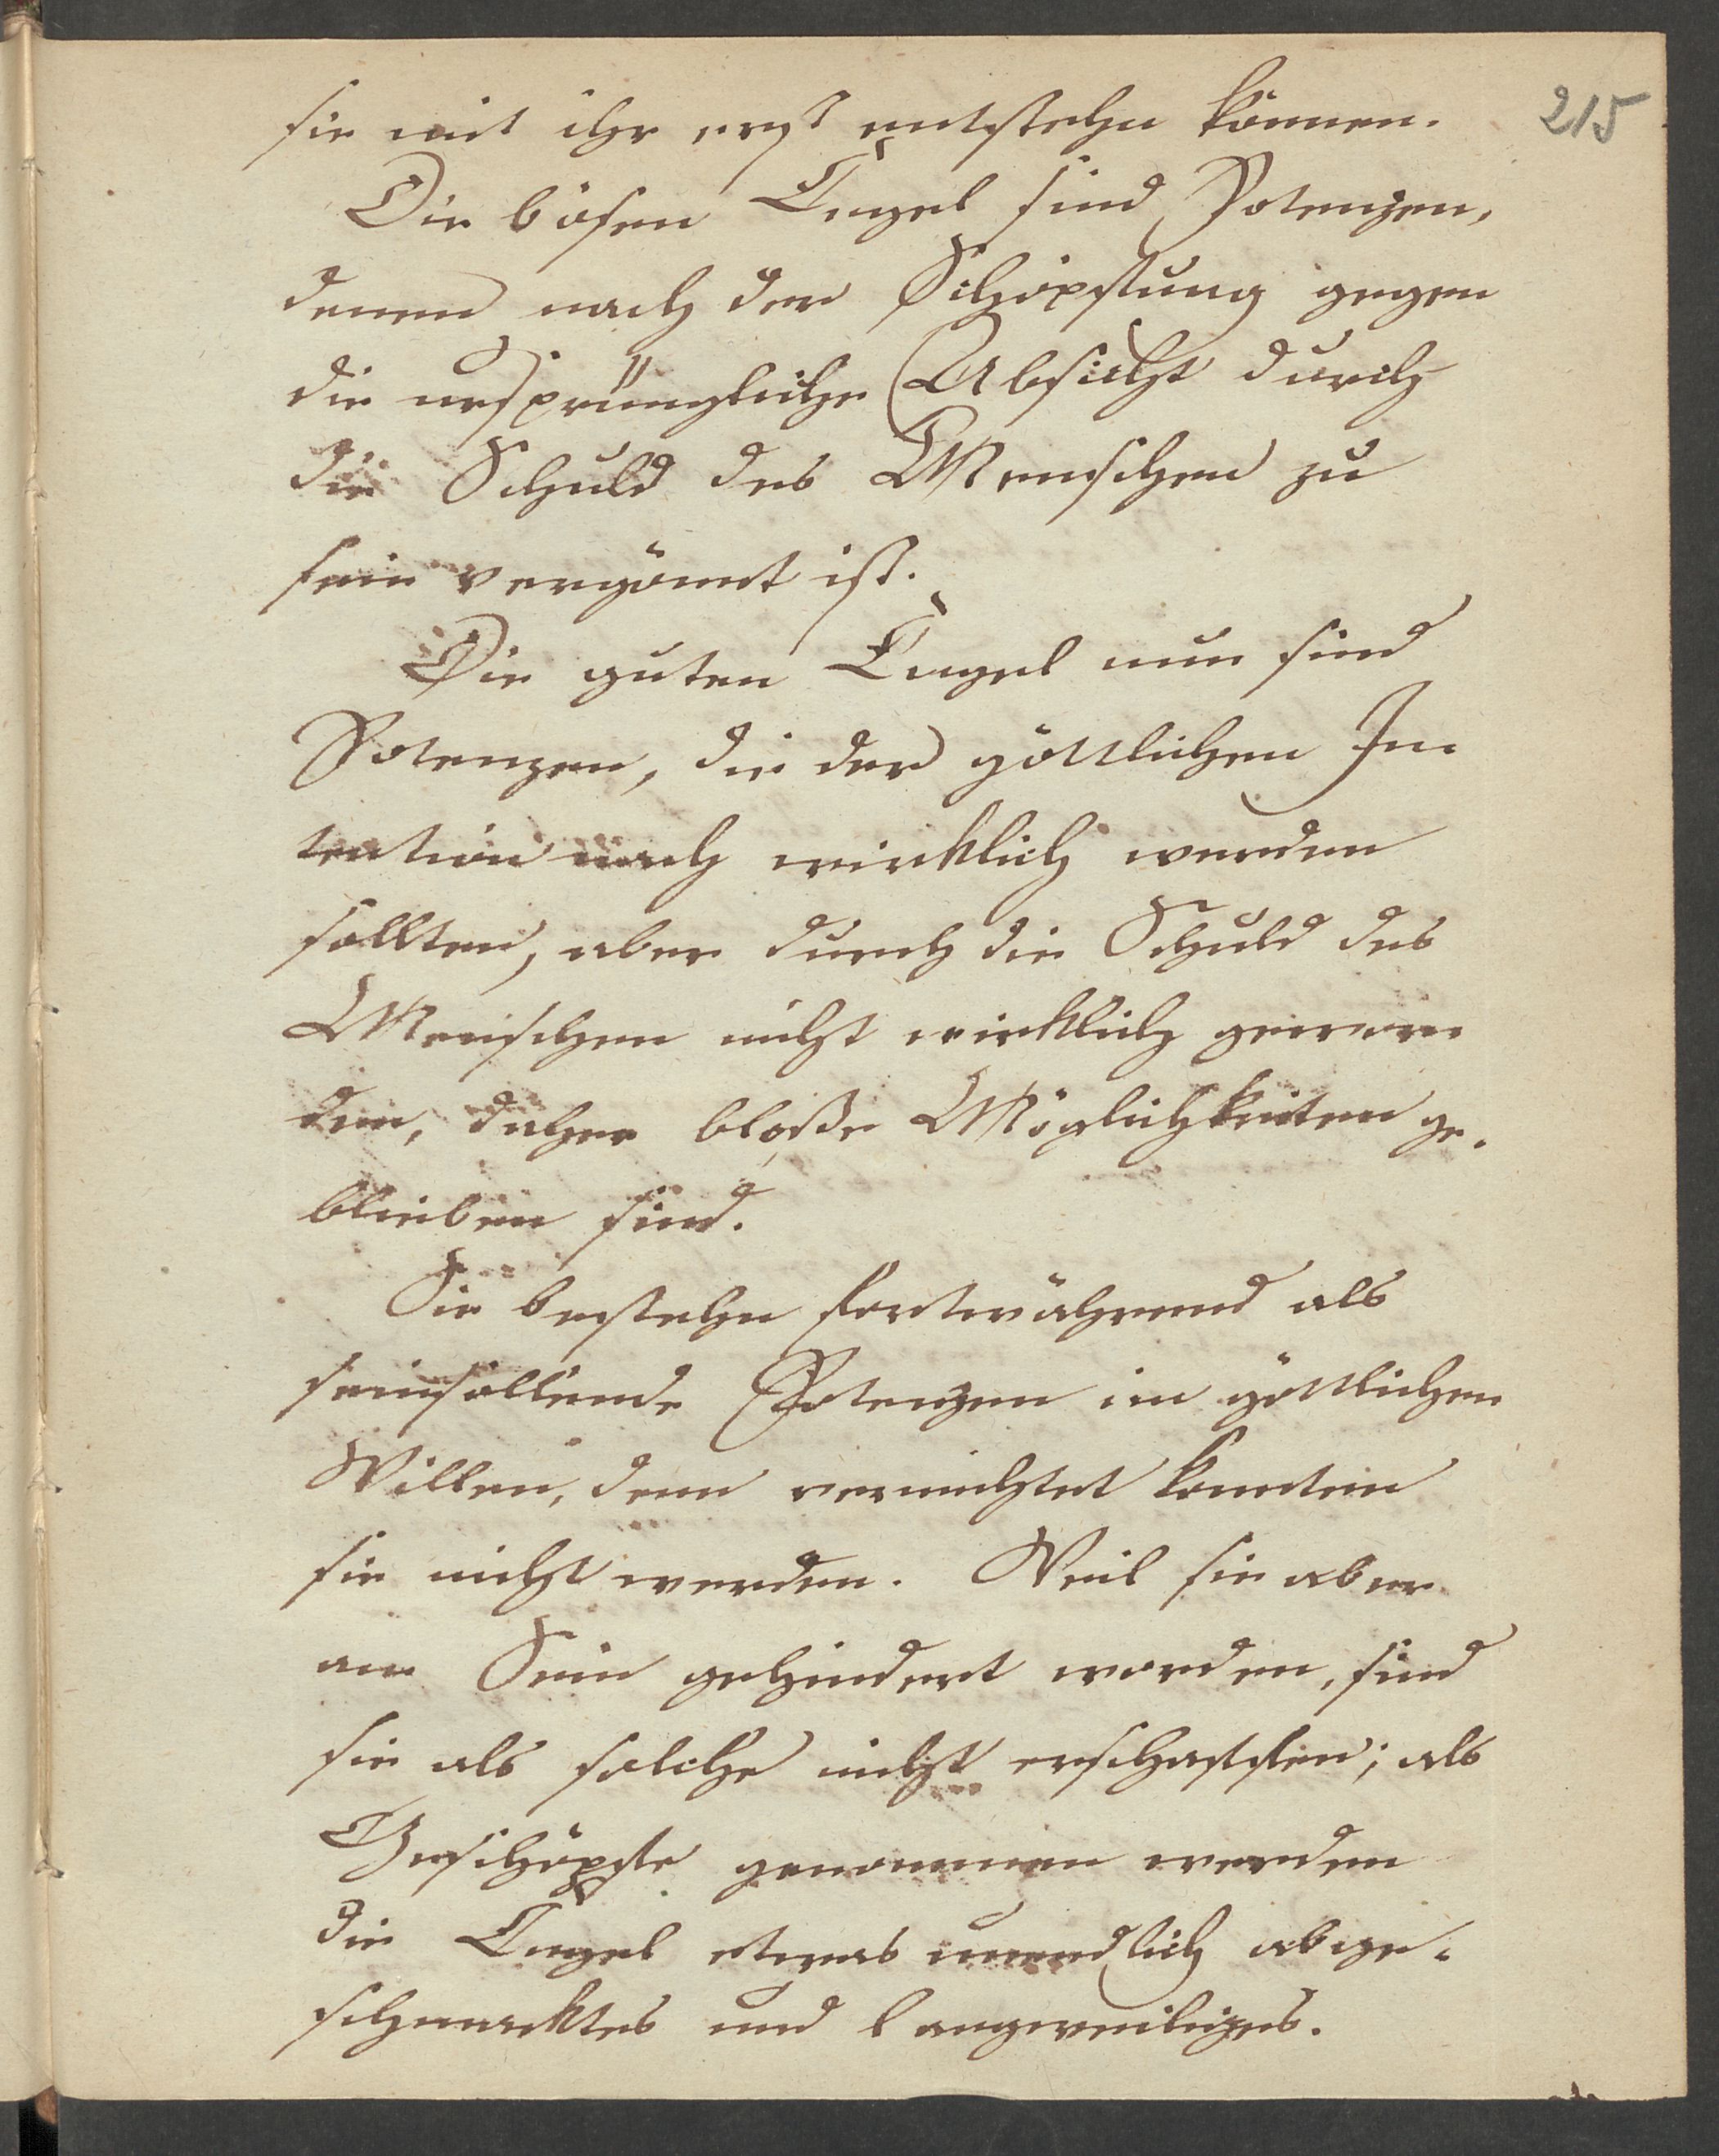 215
sie mit ihr erst entstehn können.
Die bösen Engel sind Potenzen,
denen nach der Schöpfung gegen
die ursprüngliche Absicht durch
die Schuld des Menschen zu
sein vergönnt ist.
Die guten Engel nun sind
Potenzen, die der göttlichen In-
tention nach wirklich werden
sollten, aber durch die Schuld des
Menschen nicht wirklich gewor-
den, daher bloße Möglichkeiten ge-
blieben sind.
Sie bestehn fortwährend als
seinsollende Potenzen im göttlichen
Willen, denn vernichtet konnten
sie nicht werden. Weil sie aber
am Sein gehindert worden, sind
sie als solche nicht erschaffen; als
Geschöpfe genommen werden
die Engel etwas unendlich abge-
schmacktes und langweiliges.